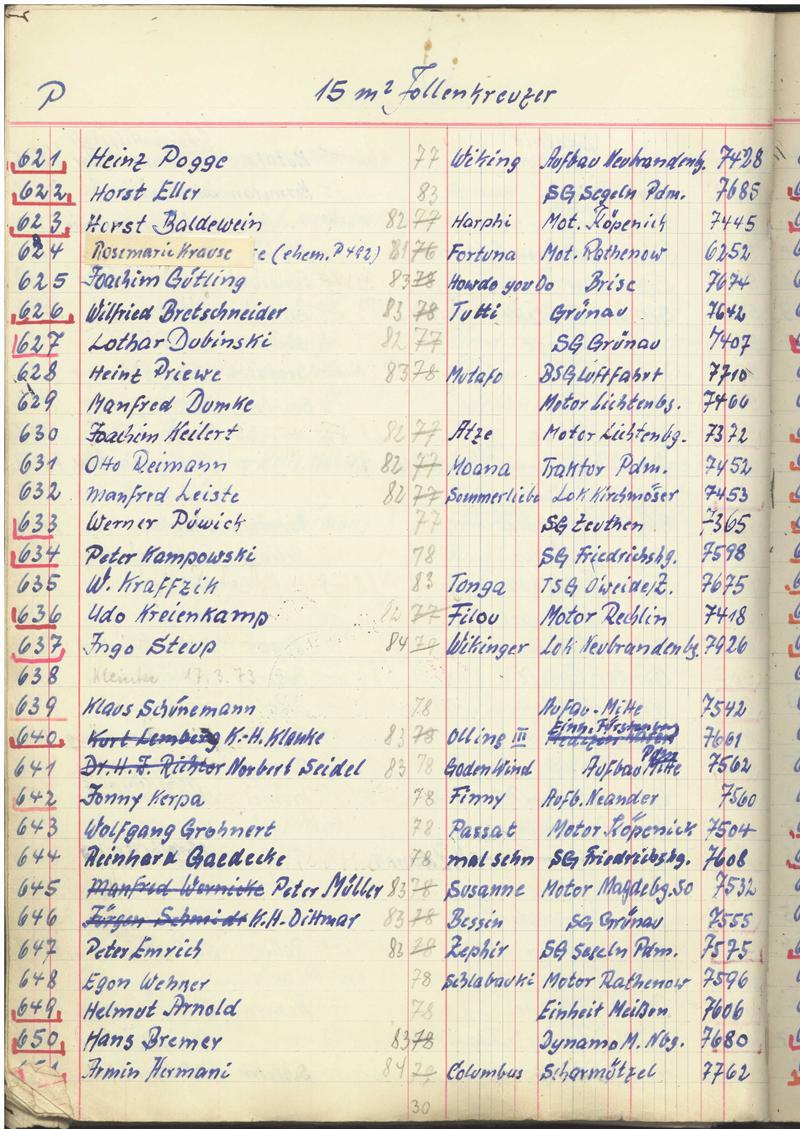 P 15 m² Jollenkreuzer
621 Heinz Pogge 77 Wiking Aufbau Neubrandenbg. 7428
622 Horst Eller 83 SG Segeln Pdm. 7685
623 Horst Baldewein 82 77 Harphi Mot. Köpenick 7445
624 Rosemarie Krause e (ehem. P 492) 81 76 Fortuna Mot. Rathenow 6252
625 Joachim Gütling 83 78 How do you Do Brise 7674
626 Wilfried Bretschneider 83 78 Tutti Grünau 7642
627 Lothar Dubinski 82 77 SG Grünau 7407
628 Heinz Priewe 83 78 Mutafo BSG Luftfahrt 7710
629 Manfred Dumke Motor Lichtenbg. 7466
630 Joachim Keilert 82 77 Atze Motor Lichtenbg. 7372
631 Otto Reimann 82 77 Moana Traktor Pdm. 7452
632 Manfred Leiste 82 77 Sommerliebe Lok Kirchmöser 7453
633 Werner Püwick 77 SG Zeuthen 7365
634 Peter Kampowski 78 SG Friedrichshg. 7598
635 W. Kraffzik 83 Tonga TSG 7675
636 Udo Kreienkamp 82 77 Filou Motor Rechlin 7418
637 Ingo Steup 84 79 Wikinger Lok Neubrandenbg. 7926
638 17.3.73
639 Klaus Schünemann 78 Aufbau-Mitte 7542
640 Kurt Lemberg K.-H. Klauke 83 78 Olling III Einh. Fürstenberg 7661
641 Dr. H. J. Richter Norbert Seidel 83 78 Goden Wind Aufbau Mitte 7562
642 Jonny Kerpa 78 Finny Aufb. Neander 7560
643 Wolfgang Grohnert 78 Passat Motor Köpenick 7504
644 Reinhard Gaedecke 78 mal sehn SG Friedrichshg. 7608
645 Manfred Wernicke Peter Müller 83 78 Susanne Motor Magdebg. SO 7532
646 Jürgen Schmidt K.H. Dittmar 83 78 Bessin SG Grünau 7555
647 Peter Emrich 83 78 Zephir SG Segeln Pdm. 7575
648 Egon Wehner 78 Schlabauki Motor Rathenow 7596
649 Helmut Arnold 78 Einheit Meißen 7606
650 Hans Bremer 83 78 Dynamo M. Nbg. 7680
Armin Hermani 84 79 Columbus Scharmützel 7762
30